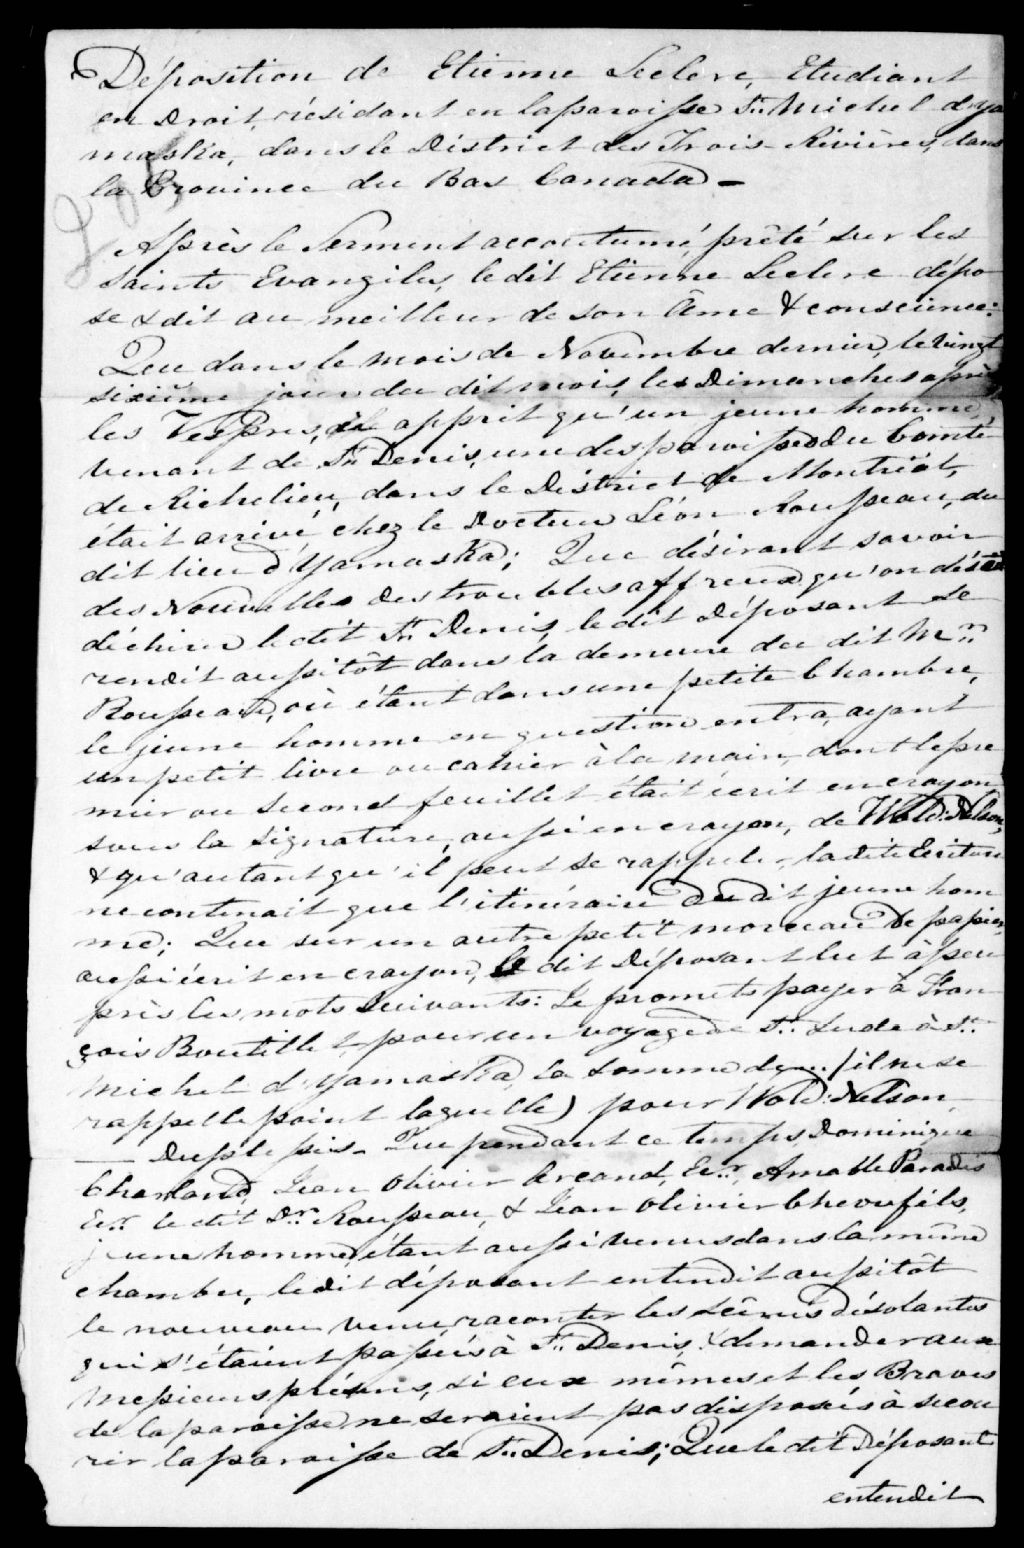 Déposition de Etienne Leclerc, Etudiant
en Droit, résidant en la paroisse St. Michel d'ya
maska, dans le District des Trois-Rivières, dans
la Province du Bas Canada —
Après le Serment accoutumé, prêté sur les
Saints Evangiles, le dit Etienne Leclerc dépo
se & dit au meilleur de son Âme & conscience:
Que dans le mois de Novembre dernier, le vingt
sixième jour du dit mois, les Dimanches après
les Vespres, il apprit qu'un jeune homme,
venant de St. Denis, une des paroisses du Comté
de Richelieu, dans le District de Montréal,
était arrivé chez le Docteur Léon Rousseau, du
dit lieu d'Yamaska; Que désirant savoir
des Nouvelles des troubles affreux qu'on dés
déchirer le dit St. Denis, le dit Déposant se
rendit aussitôt dans la demeure du dit Mr.
Rousseau, où étant dans une petite Chambre,
le jeune homme en question entra, ayant
un petit livre ou cahier à la main, dont le pre
mier ou second feuillet était écrit en crayon
sous la signature, aussi en crayon, de Wold: Nelson,
& qu'autant qu'il peut se rappeler, la dite Ecriture
ne contenait que l'itinéraire du dit jeune hom
me; Que sur un autre petit morceau de papier,
aussi écrit en crayon, le dit Déposant lut à peu
près les mots suivants: Je promets payer à Fran
çois Boutillet, pour un voyage de St. Jude à St.
Michel d'Yamaska, la somme de .. (il ne se
rappelle point laquelle) pour Wold: Nelson,
— Duplessis — Que pendant ce temps Dominique
Charland, Jean Olivier Arcand, Ecr., Amable Paradis
Ecr. le dit Dr. Rousseau, & Jean Olivier Chenu fils,
jeune homme, étant aussi venus dans la même
chambre, le dit déposant entendit aussitôt
le nouveau venu raconter les scènes désolantes
qui s'étaient passées à St. Denis, & demander aux
Messieurs présens, si eux mêmes et les Braves
de la paroisse ne seraient pas disposés à secou
rir la paroisse de St. Denis; Que le dit Déposant
entendit